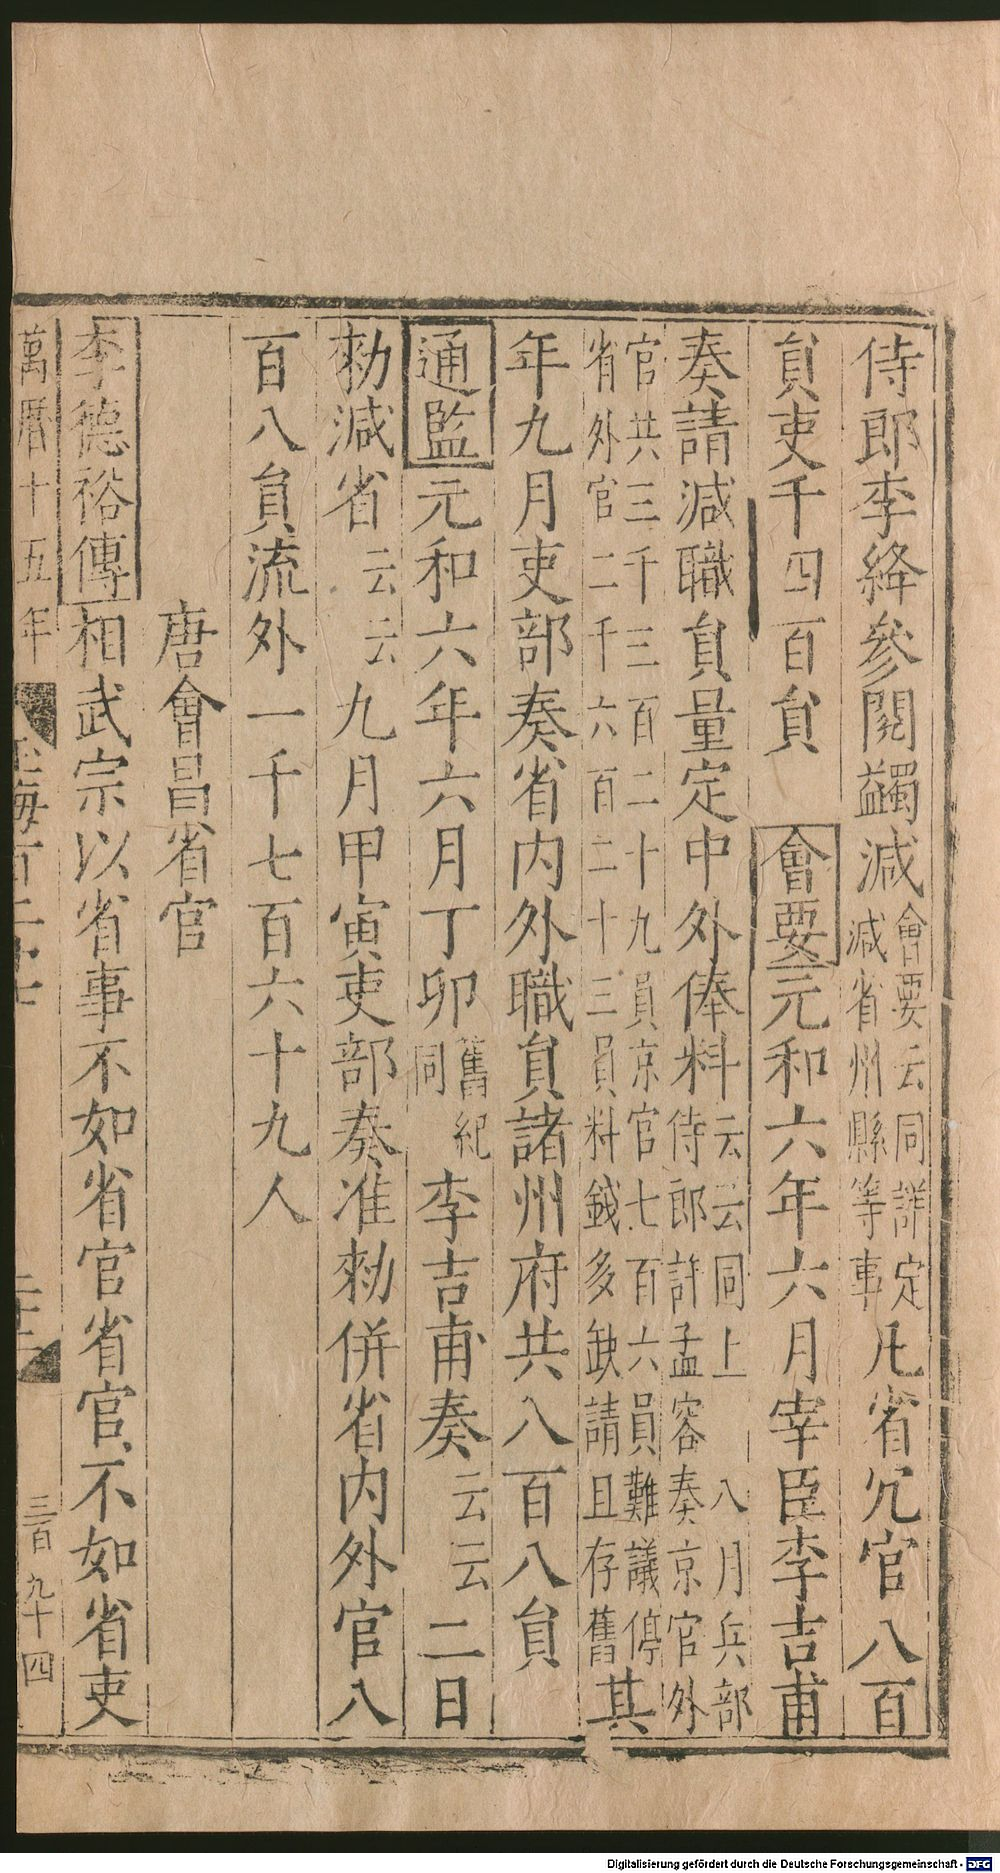 侍郎李絳參閱蠲減會要云同詳定減省州縣等事凡省冗官八百
貟吏千四百貟　會要元和六年六月宰臣李吉甫
奏請減職貟量定中外俸料云云同上　八月兵部侍郎許孟容奏京官外
官共三千三百二十九員京官七百六員難議停省外官二千六百二十三員料錢多缺請且存舊其
年九月吏部奏省内外職貟諸州府共八百八貟
通監元和六年六月丁卯舊紀同李吉甫奏云云二日
勑減省云云九月甲寅吏部奏准勑併省内外官八
百八貟流外一千七百六十九人
唐會昌省官
李德裕傳相武宗以省事不如省官省官不如省吏
萬曆十五年
海百二十七
三百九十四
Digitalisierung gefördert durch die Deutsche Forschungsgemeinschaft - DFG